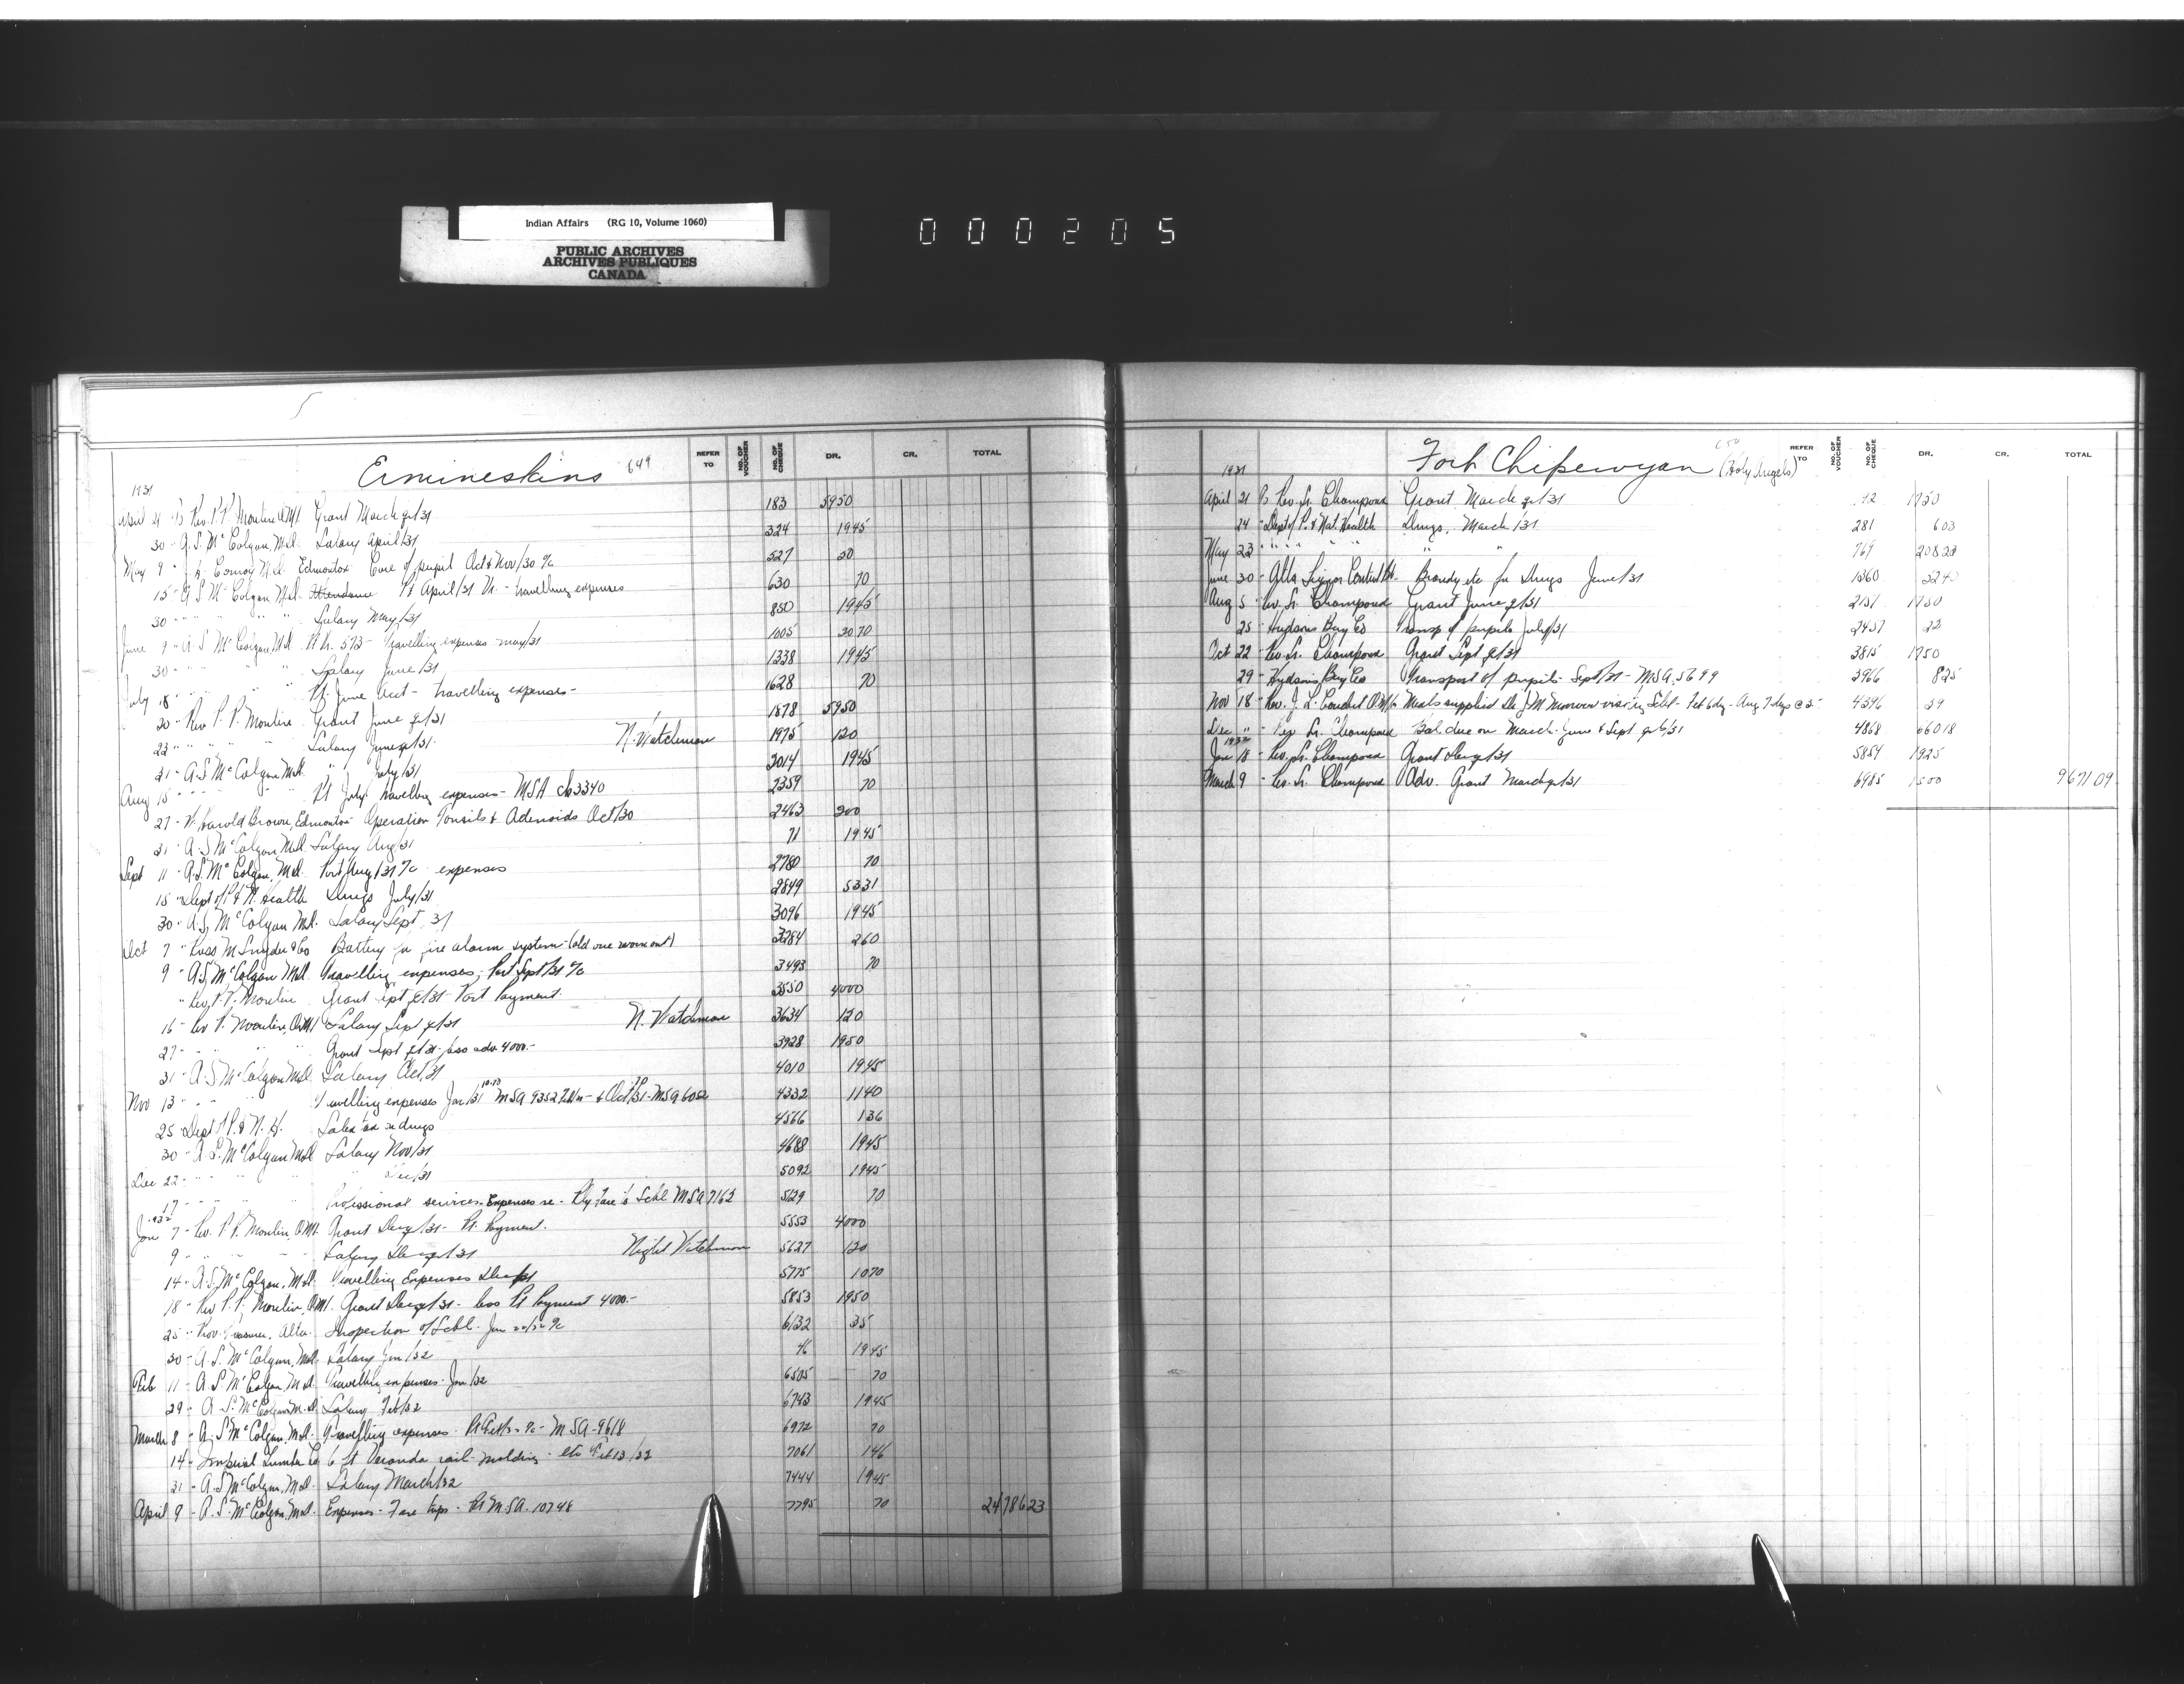 Indian Affairs (RG 10, Volume 1060)
PUBLIC ARCHIVES
ARCHIVES PUBLIQUES
CANADA
000205
Ermineskins 649
REFER TO NO. OF VOUCHER NO. OF CHEQUE DR. CR. TOTAL
1931
April 21 Rev. P. P. Moulin O.M.I. Grant March qr/31 183 5950
30 - A. S. McColgan, M.D. Salary April/31 324 1945
May 9 - Edmonton Care of pupil Oct & Nov/30 % 527 20
15 - A. S. McColgan M.D. Pt April/31 - travelling expenses 630 70
30 " " " Salary May/31 850 1945
June 9 - A. S. McColgan, M.D. 573 - Travelling expenses May/31 1005 3070
30 - " " " Salary June/31 1338 1945
July 18 " " " Pt. June Acct - travelling expenses - 1628 70
20 - Rev P. P. Moulin Grant June qr/31 1878 5950
22 " " " Salary June qr/31. N. Watchman 1975 120
31 - A. S. McColgan M.D. " July/31 2014 1945
Aug 15 " " " Pt July travelling expenses - MSA ch 3340 2359 70
27 - W. Harold Brown, Edmonton - Operation Tonsils & Adenoids Oct/30 2463 200
31 - A. S. McColgan M.D. Salary Aug/31 71 1945
Sept 11 - A. S. McColgan, M.D. Part Aug/31 % expenses 2780 70
15 - Dept of P. & N. Health Drugs July/31 2849 5331
30 - A. S. McColgan M.D. Salary Sept. 31 3096 1945
Oct 7 - Ross M Snyder & Co Battery for fire alarm system - (old one worn out) 3284 260
9 - A. S. McColgan M.D. Travelling expenses, Part Sept/31 % 3493 70
" Rev. P. P. Moulin Grant Sept qr/31 - Part Payment. 3550 4000
16 - Rev P. Moulin, O.M.I. Salary Sept qr/31 N. Watchman 3634 120
27 - " " " Grant Sept qr/31 - less adv 4000.- 3928 1950
31 - A. S. McColgan M.D. Salary Oct, 31 4010 1945
Nov 13 - " " Travelling expenses Jan/31 MSA 9352 & Oct/31 - MSA 6052 4332 1140
25 - Dept of P. & N. H. Sales tax on drugs 4566 136
30 - A. S. McColgan M.D. Salary Nov/31 4688 1945
Dec 22 - " " " " Dec/31 5092 1945
17 - " " " Professional services. Expenses re - Rly fare to Schl MSA 7162 5129 70
1932
Jan 7 - Rev. P. P. Moulin, O.M.I. Grant Dec qr/31 - Pt. Payment. 5553 4000
9 " " " Salary Dec qr/31 Night Watchman 5627 120
14 - A. S. McColgan, M.D. Travelling Expenses Dec 5775 1070
18 - Rev P. P. Moulin, O.M.I. Grant Dec qr/31 - less Pt Payment 4000.- 5853 1950
25 - Prov. Treasurer, Alta. Inspection of Schl. Jan % 6132 35
30 - A. S. McColgan, M.D. Salary Jan/32 46 1945
Feb 11 - A. S. McColgan, M.D. Travelling expenses - Jan/32 6505 70
29 - A. S. McColgan M.D. Salary Feb/32 6743 1945
March 8 - A. S. McColgan, M.D. Travelling expenses % - MSA - 9618 6972 70
14 - Imperial Lumber Co 6 ft Veranda rail - molding - etc Feb 13/32 7061 146
31 - A. S. McColgan, M.D. Salary March/32 7444 1945
April 9 - A. S. McColgan, M.D. Expenses - Fare trips - Pt MSA. 10748 7795 70 2478623
Fort Chipewyan (Holy Angels) 650
REFER TO NO. OF VOUCHER NO. OF CHEQUE DR. CR. TOTAL
1931
April 21 Rev. Sr. Champoux Grant March qr/31 1750
24 - Dept of P. & Nat. Health Drugs, March/31 281 603
May 23 " " " " " " " 769 20823
June 30 - Alta Liquor Control Bd. Brandy etc for Drugs June/31 1360
Aug 5 - Rev. Sr. Champoux Grant June qr/31 2151 1750
25 - Hudsons Bay Co Transp of pupils July/31 2457 22
Oct 22 - Rev. Sr. Champoux Grant Sept qr/31 3815 1750
29 - Hudsons Bay Co Transport of pupils - Sept/31 - MSA. 5699 3966 825
Nov 18 - Rev. J. L. Coudert O.M.I. Meals supplied visiting Schl - Feb 6 dys - Aug 7 days @ 4396 39
Dec " - Rev Sr. Champoux Bal. due on March - June & Sept qrs/31 4868 66018
1932
Jan 18 - Rev. Sr. Champoux Grant Dec qr/31 5854 1925
March 9 - Rev. Sr. Champoux Adv. Grant March qr/31 6985 1500 967109